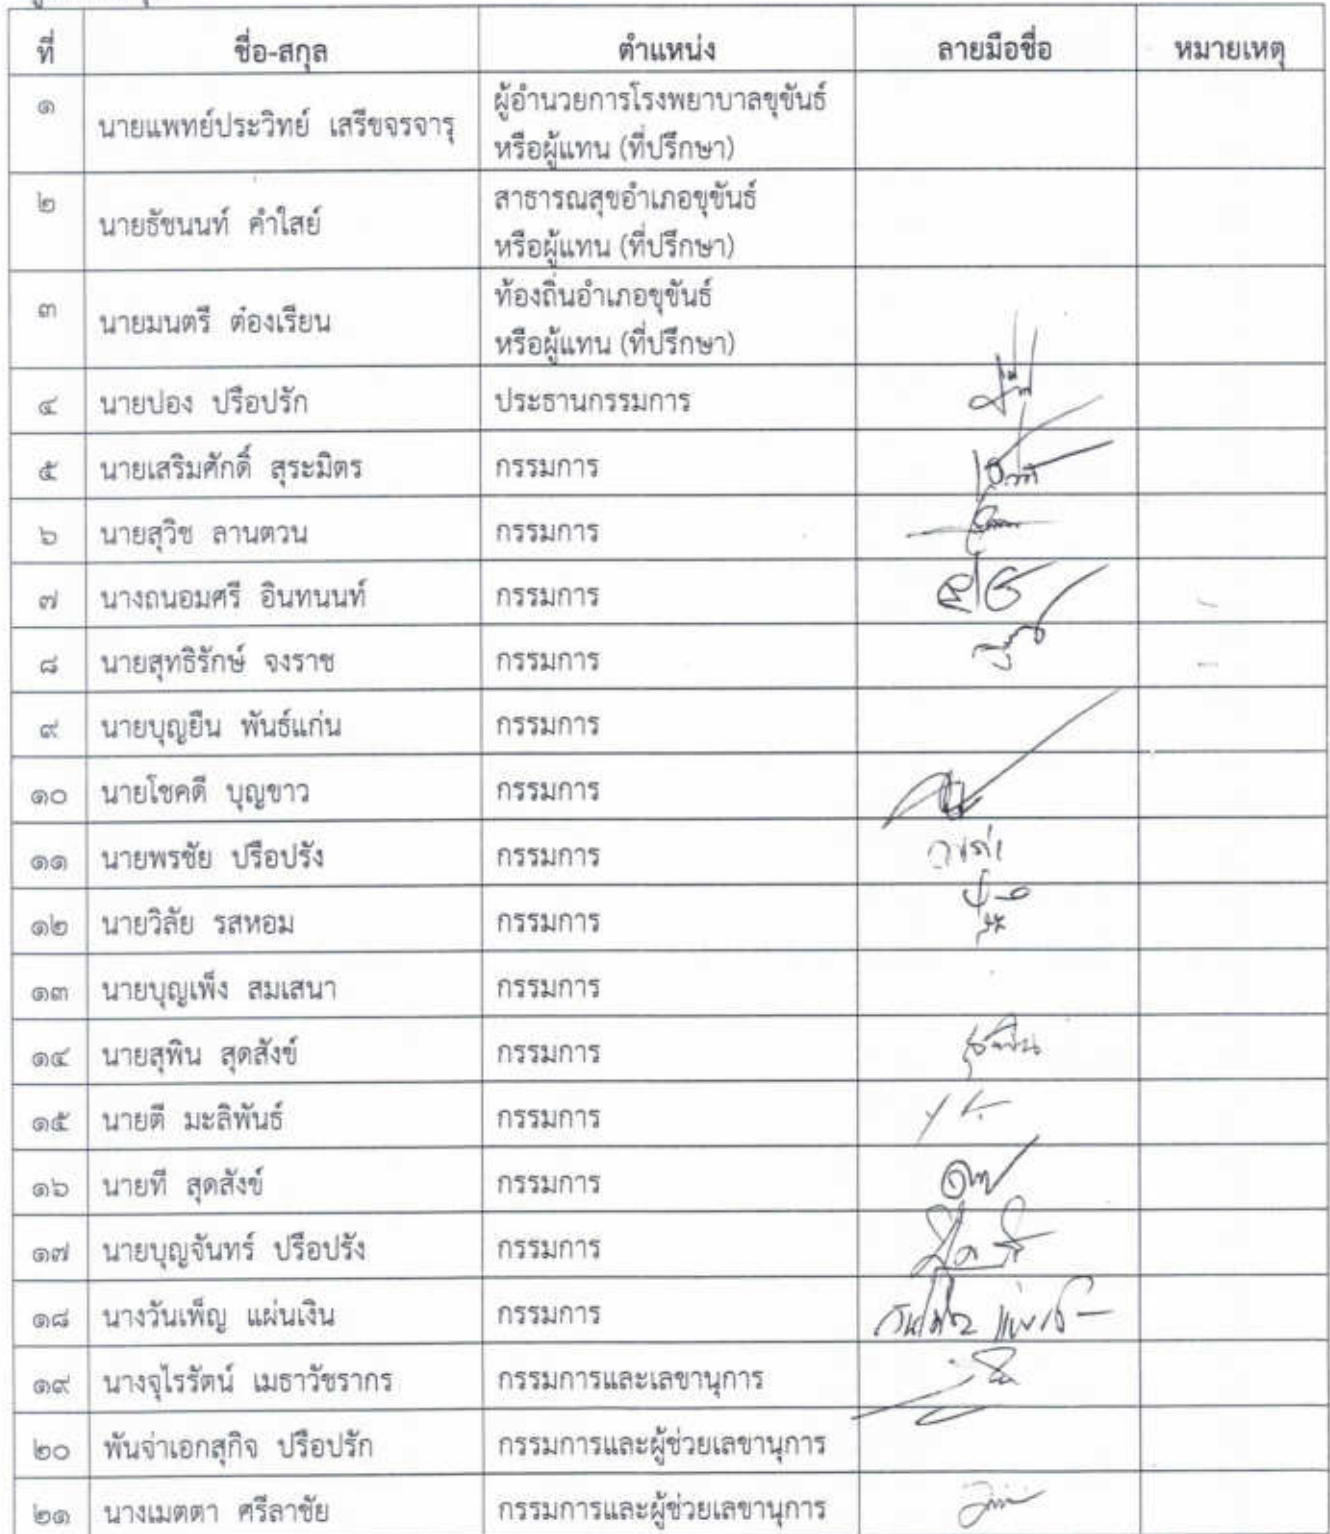 ที่ ชื่อ-สกุล ตำแหน่ง ลายมือชื่อ หมายเหตุ
๑ นายแพทย์ประวิทย์ เสรีขจรจารุ ผู้อำนวยการโรงพยาบาลขุขันธ์
หรือผู้แทน (ที่ปรึกษา)
๒ นายธัชนนท์ คำใสย์ สาธารณสุขอำเภอขุขันธ์
หรือผู้แทน (ที่ปรึกษา)
๓ นายมนตรี ต๋องเรียน ท้องถิ่นอำเภอขุขันธ์
หรือผู้แทน (ที่ปรึกษา)
๔ นายปอง ปรือปรัก ประธานกรรมการ
๕ นายเสริมศักดิ์ สุระมิตร กรรมการ
๖ นายสุวิช ลานตวน กรรมการ
๗ นางถนอมศรี อินทนนท์ กรรมการ
๘ นายสุทธิรักษ์ จงราช กรรมการ
๙ นายบุญยืน พันธ์แก่น กรรมการ
๑๐ นายโชคดี บุญขาว กรรมการ
๑๑ นายพรชัย ปรือปรัง กรรมการ
๑๒ นายวิลัย รสหอม กรรมการ
๑๓ นายบุญเพ็ง สมเสนา กรรมการ
๑๔ นายสุพิน สุดสังข์ กรรมการ สุพิน
๑๕ นายตี มะลิพันธ์ กรรมการ
๑๖ นายที สุดสังข์ กรรมการ
๑๗ นายบุญจันทร์ ปรือปรัง กรรมการ
๑๘ นางวันเพ็ญ แผ่นเงิน กรรมการ
๑๙ นางจุไรรัตน์ เมธาวัชรากร กรรมการและเลขานุการ
๒๐ พันจ่าเอกสุกิจ ปรือปรัก กรรมการและผู้ช่วยเลขานุการ
๒๑ นางเมตตา ศรีลาชัย กรรมการและผู้ช่วยเลขานุการ